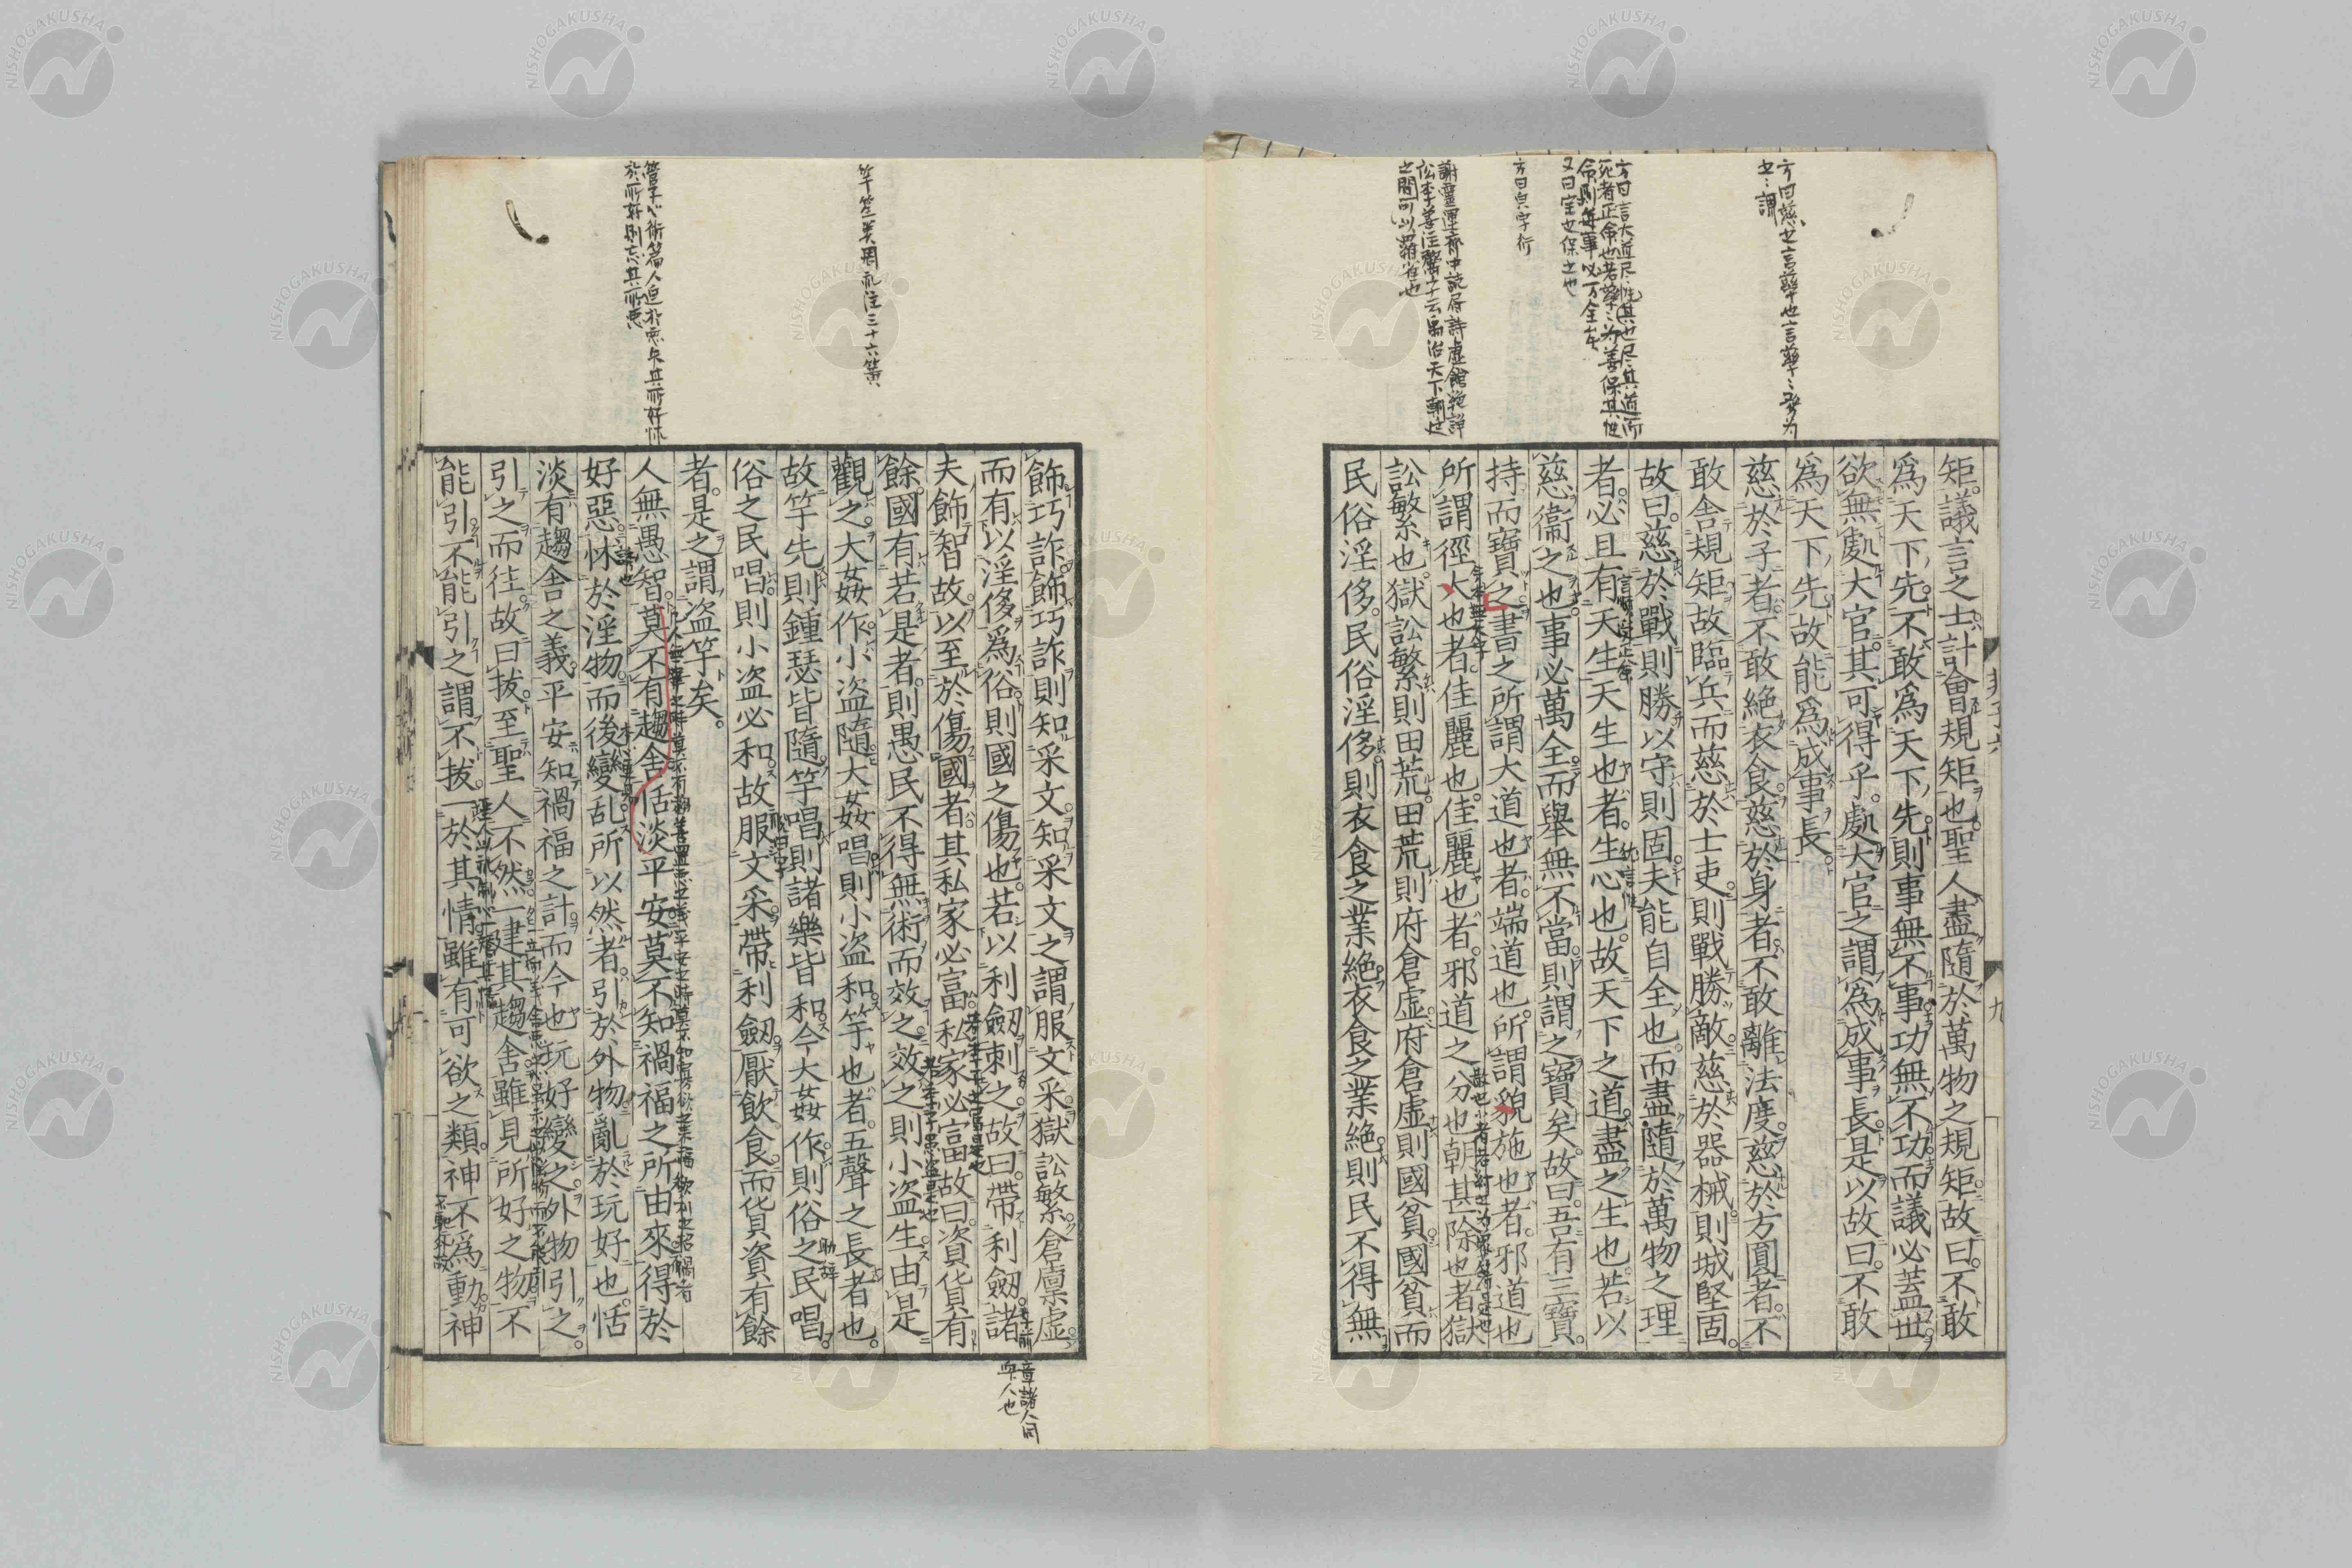 矩議言之士計會規矩也聖人盡隨於萬物之規矩故曰不敢
爲天下先不敢爲天下先則事無不事功無不功而議必蓋世
欲無處大官其可得乎處大官之謂爲成事長是以故曰不敢
爲天下先故能爲成事長
慈於子者不敢絶衣食慈於身者不敢離法度慈於方圓者不
敢舍規矩故臨兵而慈於士吏則戰勝敵慈於器械則城堅固
故曰慈於戰則勝以守則固夫能自全也而盡隨於萬物之理
者必且有天生天生也者生心也故天下之道盡之生也若以
慈衞之也事必萬全而舉無不當則謂之寶矣故曰吾有三寶
持而寶之書之所謂大道也者端道也所謂貌施也者邪道也
所謂徑大也者佳麗也佳麗也者邪道之分也朝甚除也者獄
訟繁也獄訟繁則田荒田荒則府倉虚府倉虚則國貧國貧而
民俗淫侈民俗淫侈則衣食之業絶衣食之業絶則民不得無
飾巧詐飾巧詐則知采文知采文之謂服文采獄訟繁倉廩虚
而有以淫侈爲俗則國之傷也若以利劔刺之故曰帶利劔諸
夫飾智故以至於傷國者其私家必富私家必富故曰資貨有
餘國有若是者則愚民不得無術而效之效之則小盗生由是
觀之大姦作小盗隨大姦唱則小盗和竽也者五聲之長者也
故竽先則鍾瑟皆隨竽唱則諸樂皆和今大姦作則俗之民唱
俗之民唱則小盗必和故服文采帶利劔厭飲食而貨資有餘
者是之謂盗竽矣
人無愚智莫不有趨舍恬淡平安莫不知禍福之所由來得於
好惡怵於淫物而後變乱所以然者引於外物亂於玩好也恬
淡有趨舍之義平安知禍福之計而今也玩好變之外物引之
引之而往故曰拔至聖人不然一建其趨舍雖見所好之物不
能引不能引之謂不拔一於其情雖有可欲之類神不爲動神
方曰慈也言孳也言孳〻爲
也〻謂
方曰言大道尽性其也尽其道而
死者正命也若孳〻为善保其性
命則每事以万全矣
又曰宝也保之也
方曰貝字衍
謝靈運斎中読居詩虚館絶諍
訟李善注鬻子云禹治天下朝廷
之間可以羅雀也
竽笙类周礼注三十六簧
管子心術篇人迫於悪失其所好怵
於所好則忘其所悪
九
NISHOGAKUSHA